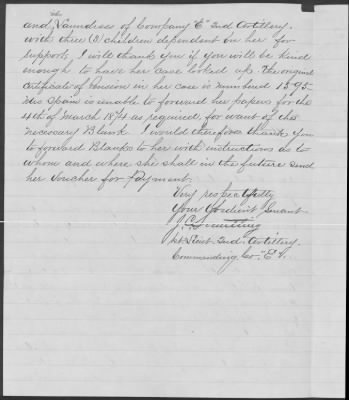 and Laundress of Company "E" 2nd Artillery.
with three (3) children dependent on her for
support, I will thank you if you will be kind
enough to have her case looked up. The original
Certificate of Pension in her case is numbered 1595.
Mrs Spain is unable to forward her papers for the
4th of March 1874 as required, for want of the
necessary Blank. I would therefore thank you
to forward Blanks to her with instructions as to
whom and where she shall in the future send
her Voucher for Payment.
Very respectfully
Your Obedient Servant
1st Lieut. 2nd Artillery.
Commanding Co. "E".